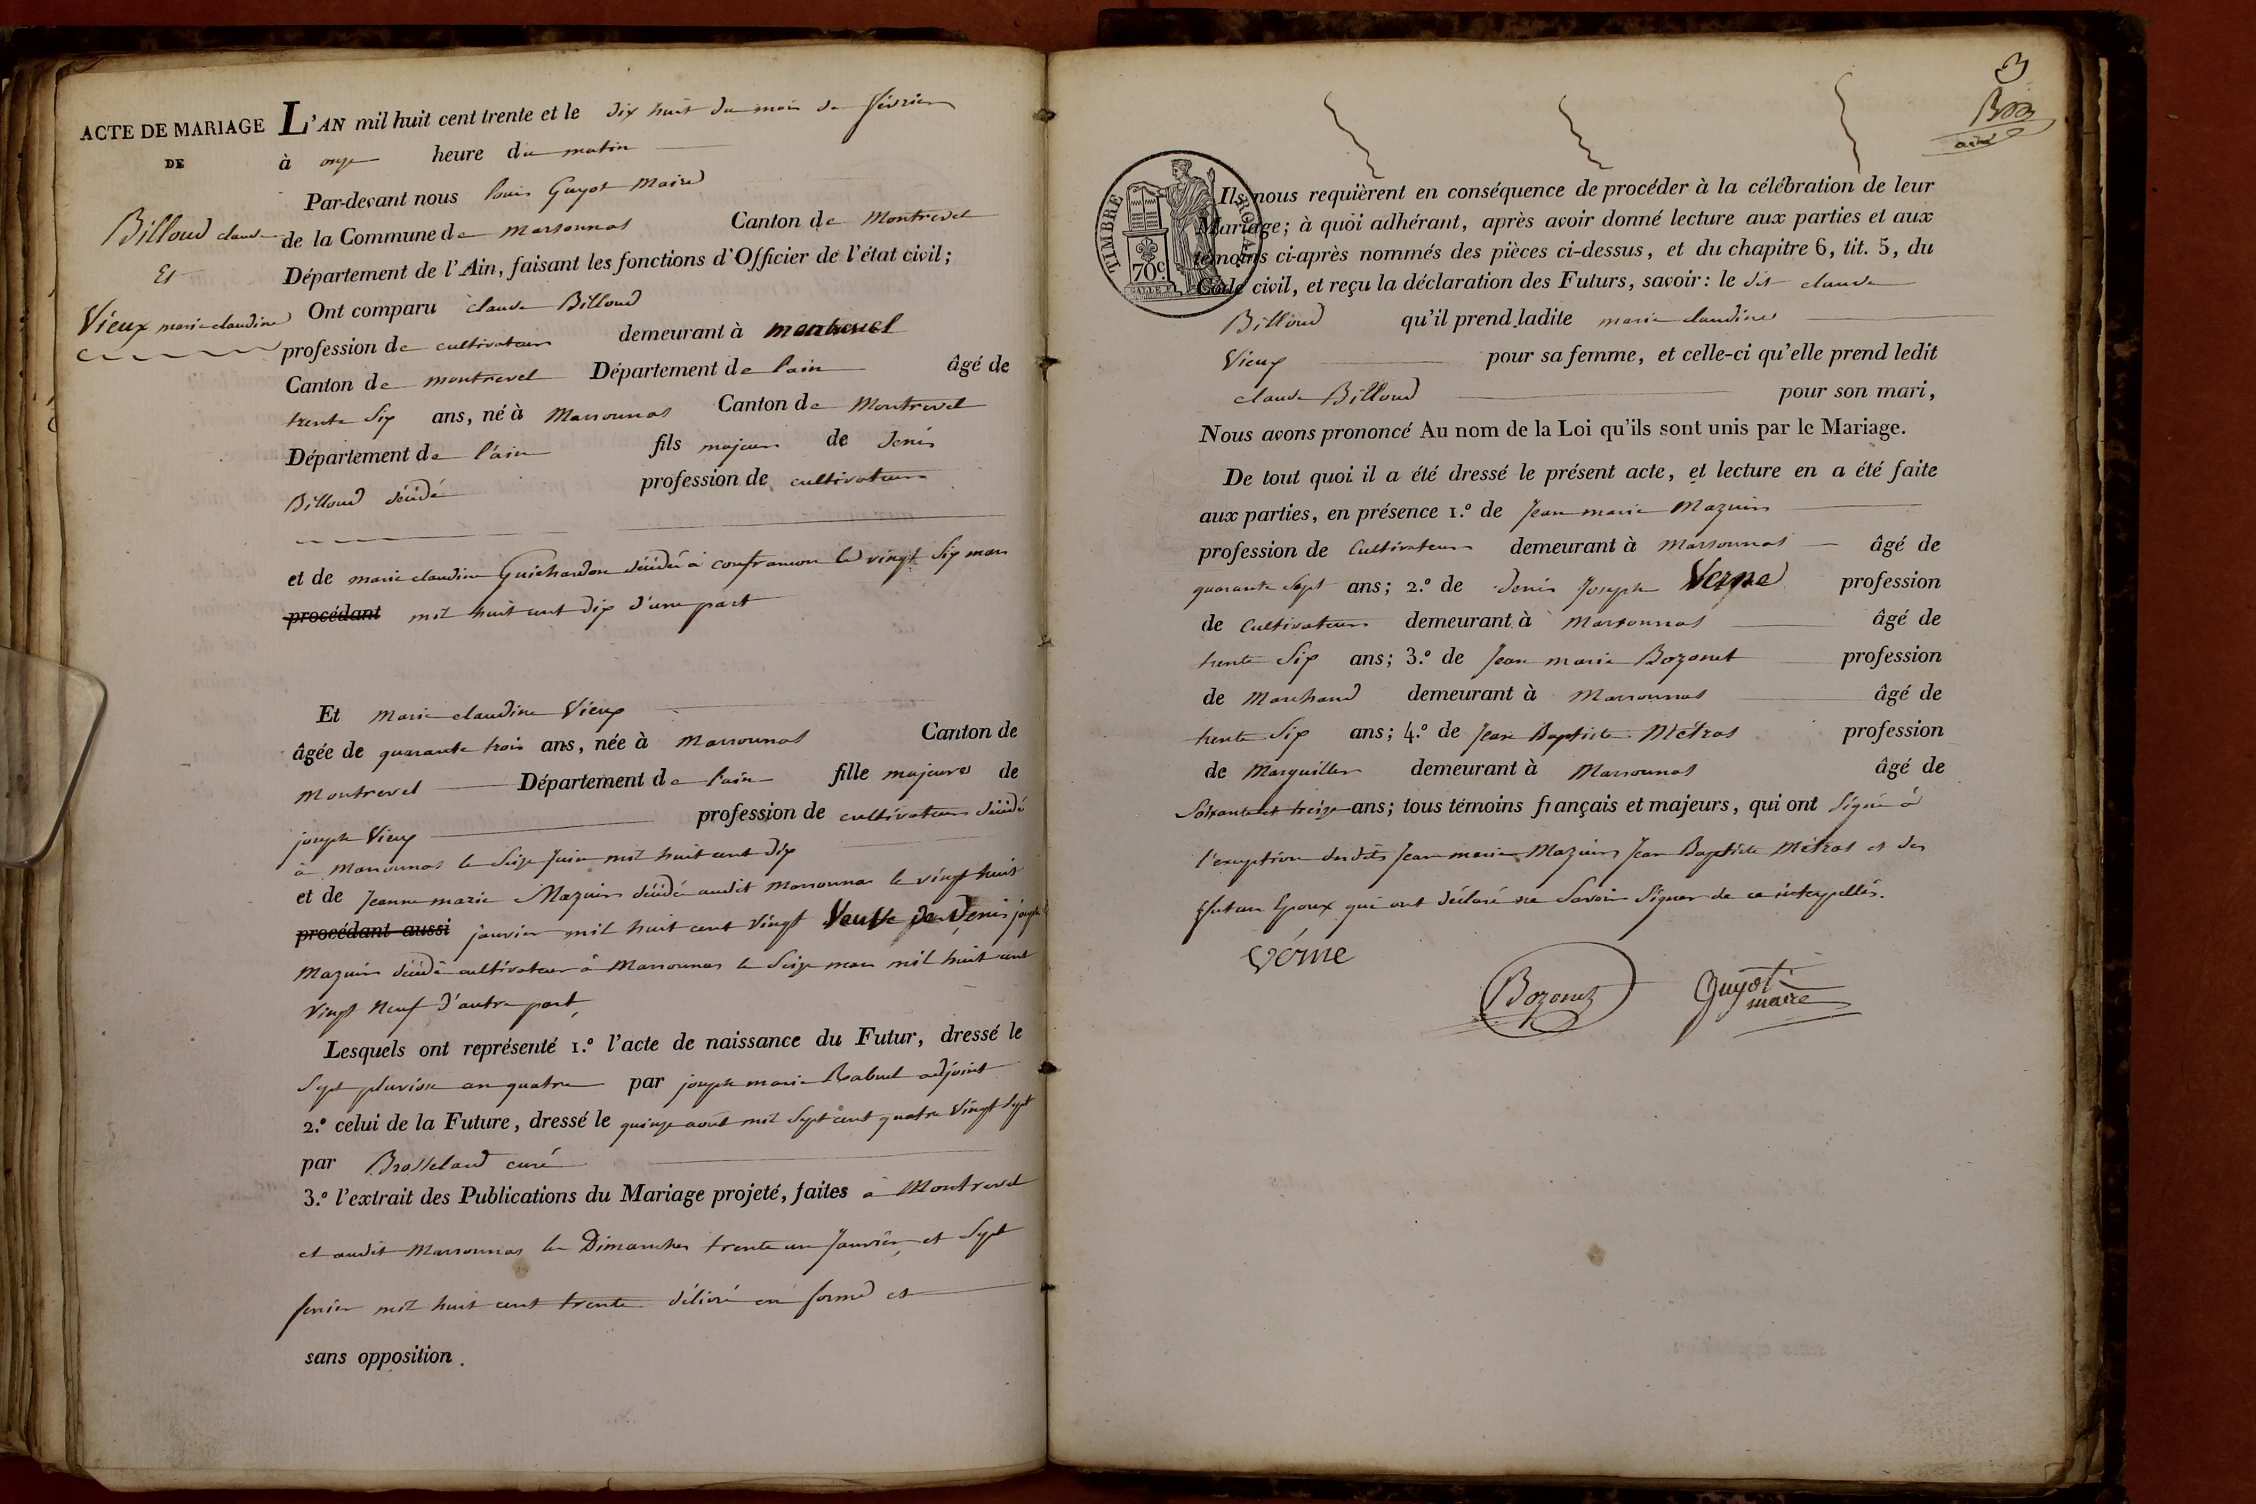 ACTE DE MARIAGE
DE
Billoud claude
Et
Vieux marie claudine
L'AN mil huit cent trente et le dix huit du mois de février
à onze heure du matin
Par-devant nous Louis Guyot Maire
de la Commune de marsonnas Canton de Montrevel
Département de l'Ain, faisant les fonctions d'Officier de l'état civil;
Ont comparu claude Billoud
profession de cultivateur demeurant à montrevel
Canton de montrevel Département de lain âgé de
trente Six ans, né à Marsonnas Canton de Montrevel
Département de l'ain fils majeur de denis
Billoud décédé profession de cultivateur
et de marie claudine Guichardon décédé à confrancon le vingt Six mars
procédant mil huit cent dix d'une part
Et Marie claudine Vieux
âgée de quarante trois ans, née à Marsonnas Canton de
Montrevel Département de l'ain fille majeure de
joseph Vieux profession de cultivateur décédé
à Marsonnas le Seize Juin mil huit cent dix
et de Jeanne marie Mazuir décédé audit Marsonnas le vingt huit
procédant aussi janvier mil huit cent vingt Veuve de Denis joseph
Mazuir décédé cultivateur à Marsonnas le Seize mars mil huit cent
vingt Neuf d'autre part,
Lesquels ont représenté 1.º l'acte de naissance du Futur, dressé le
Sept pluviose an quatre par joseph marie Rabuel adjoint
2.º celui de la Future, dressé le quinze aout mil Sept cent quatre Vingt Sept
par Brosselard curé
3.º l'extrait des Publications du Mariage projeté, faites à Montrevel
et audit Marsonnas les Dimanches trente un Janvier et Sept
fevrier mil huit cent trente délivré en forme et
sans opposition.
3
TIMBRE ROYAL
70c
Ils nous requièrent en conséquence de procéder à la célébration de leur
Mariage; à quoi adhérant, après avoir donné lecture aux parties et aux
témoins ci-après nommés des pièces ci-dessus, et du chapitre 6, tit. 5, du
Code civil, et reçu la déclaration des Futurs, savoir: le dit claude
Billoud qu'il prend ladite marie claudine
Vieux pour sa femme, et celle-ci qu'elle prend ledit
claude Billoud pour son mari,
Nous avons prononcé Au nom de la Loi qu'ils sont unis par le Mariage.
De tout quoi il a été dressé le présent acte, et lecture en a été faite
aux parties, en présence 1.º de Jean marie Mazuir
profession de Cultivateur demeurant à Marsonnas âgé de
quarante Sept ans; 2.º de denis Joseph Verne profession
de Cultivateur demeurant à Marsonnas âgé de
trente Six ans; 3.º de Jean marie Bozonet profession
de Marchand demeurant à Marsonnas âgé de
trente Six ans; 4.º de Jean Baptiste Métras profession
de Marguiller demeurant à Marsonnas âgé de
Soixante et treize ans; tous témoins français et majeurs, qui ont Signé à
l'exception desdits Jean marie Mazuir Jean Baptiste Métras et des
futurs Epoux qui ont déclaré ne Savoir Signer de ce interpellés.
verne
Bozonet
Guyot
maire